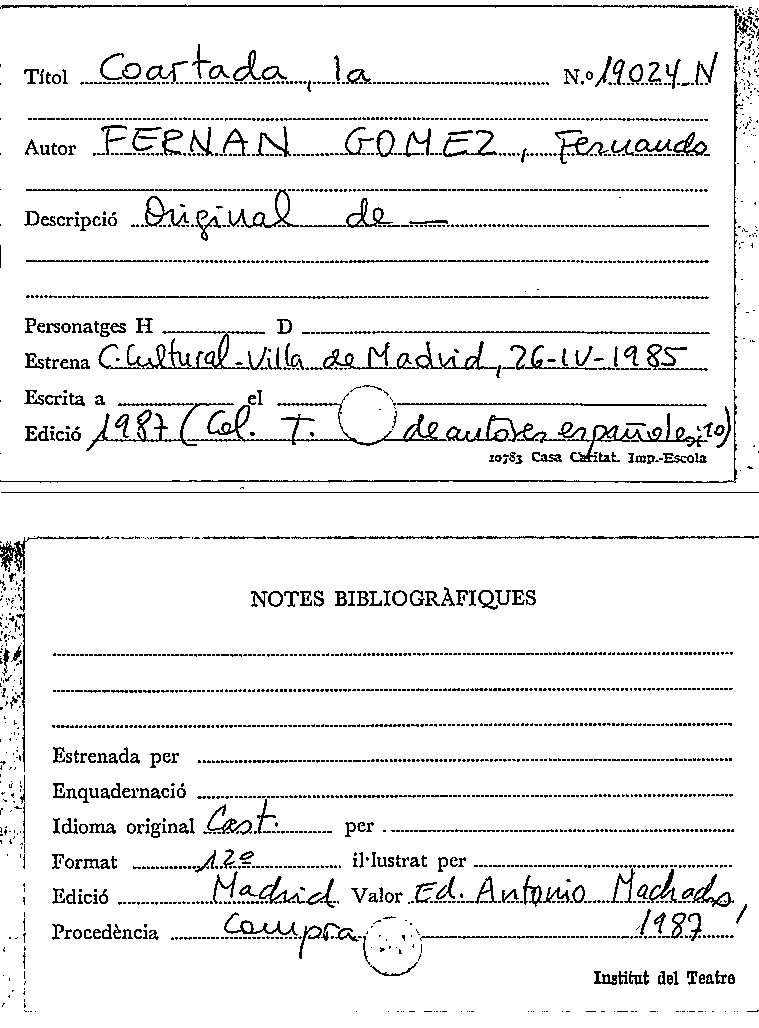 Títol Coartada, la N.º 19024-N
Autor FERNAN GOMEZ, Fernando
Descripció Original de —
Personatges H D
Estrena C. Cultural-Villa de Madrid, 26-IV-1985
Escrita a el
Edició 1987 (Col. T. de autores españoles; 10)
10783 Casa Caritat. Imp.-Escola
NOTES BIBLIOGRÀFIQUES
Estrenada per
Enquadernació
Idioma original Cast. per
Format 12º il·lustrat per
Edició Madrid Valor Ed. Antonio Machado,
Procedència Compra 1987
Institut del Teatre